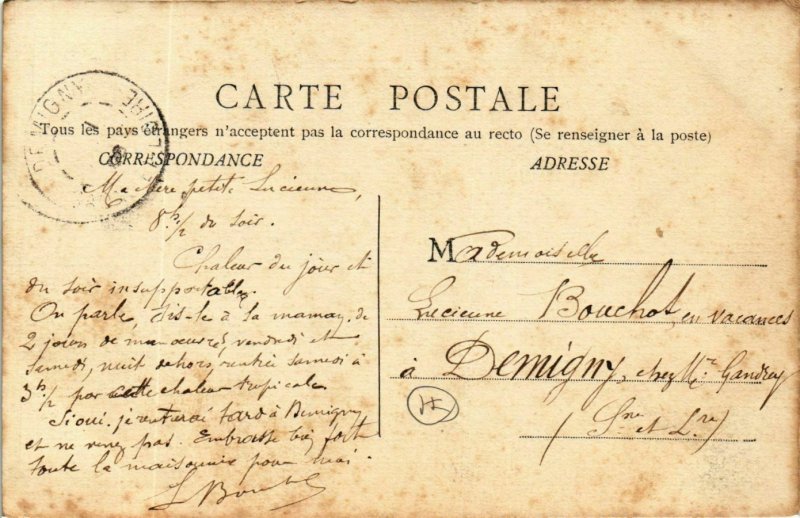 CARTE POSTALE
Tous les pays étrangers n'acceptent pas la correspondance au recto (Se renseigner à la poste)
CORRESPONDANCE
ADRESSE
DEMIGNY
Ma chère petite Lucienne,
8h½ du soir.
Chaleur du jour et
du soir insupportables
On parle, dis-le à la maman, de
2 jours de manœuvres, vendredi et
samedi, nuit dehors, rentrée samedi à
3h½ par cette chaleur tropicale
Si oui, je rentrerai tard à Demigny
et ne venez pas. Embrasse bien fort
toute la maisonnée pour moi.
L Bouchot
Mademoiselle
Lucienne Bouchot, en vacances
à Demigny, chez Mr Gandrey
(Sne et Lre)